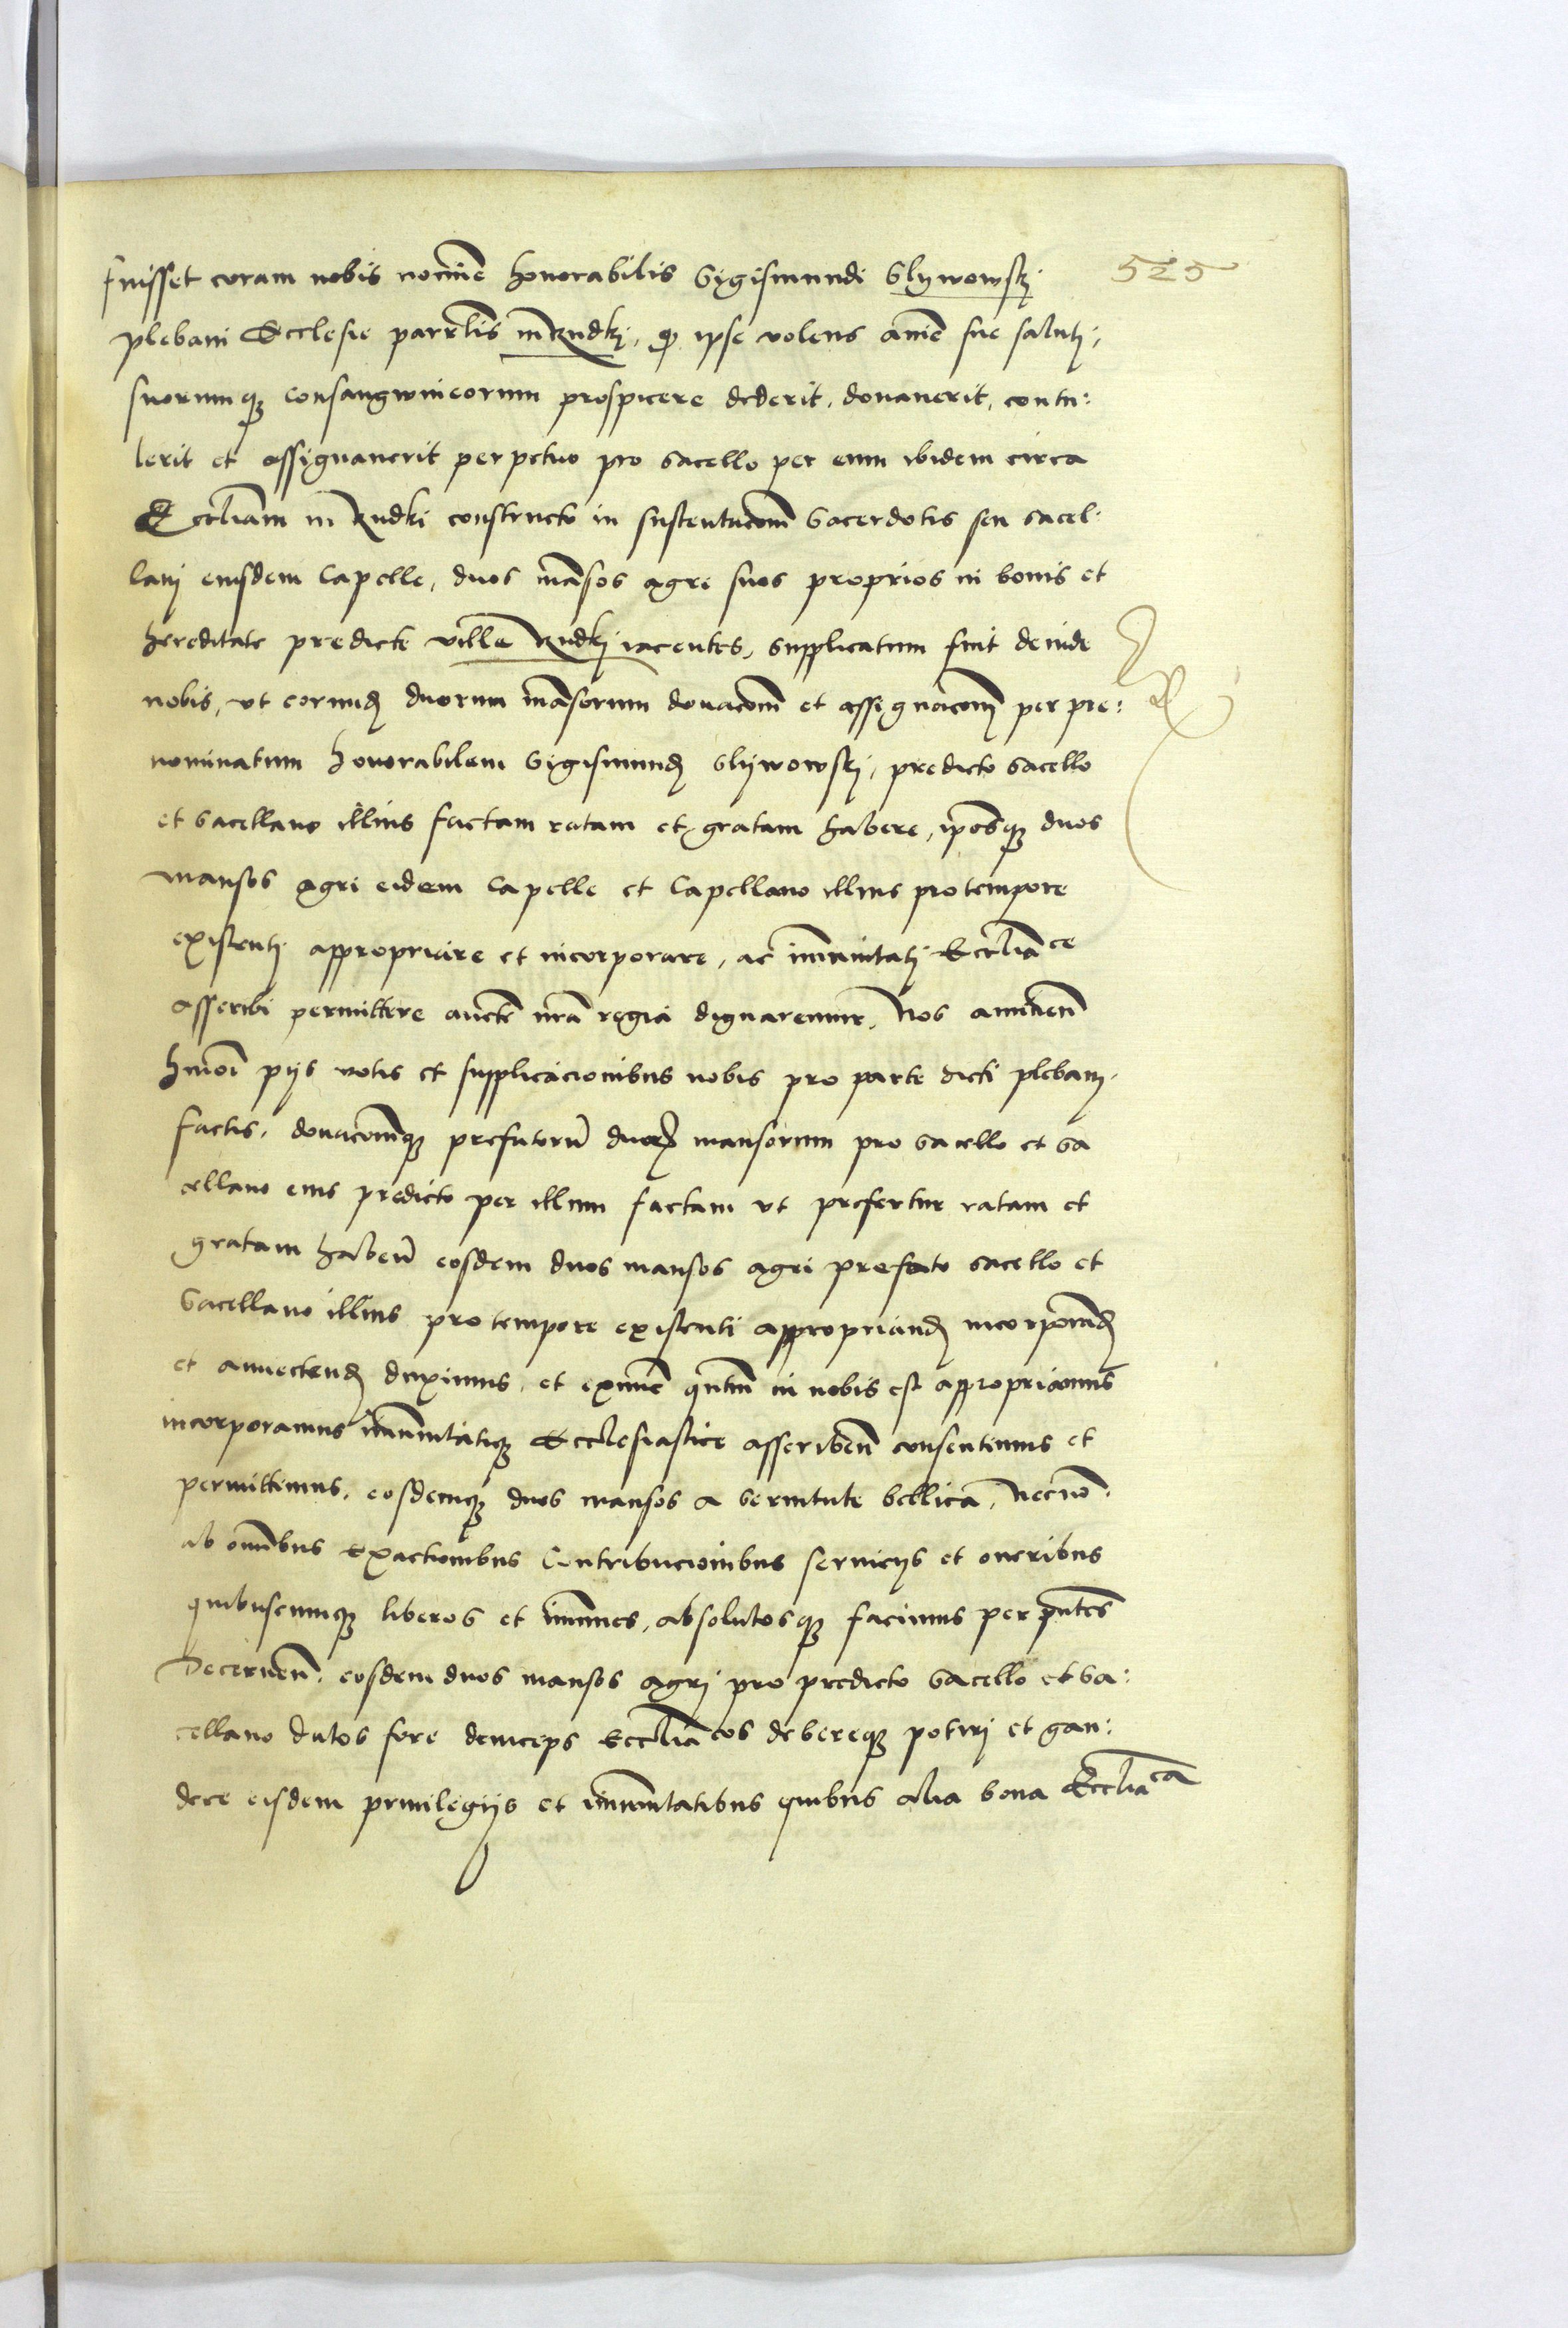 fuisset coram nobis nomine honorabilis Sigismundi Slijwowskj 525
plebani Ecclesie parrochialis in Rudkj, quod ipse volens anime sue salutj,
suorumque consangwineorum prospicere dederit, donauerit, contu:
lerit et assignauerit perpetuo pro sacello per eum ibidem circa
Eccliam in Rudki constructo in sustentacionem Sacerdotis seu sacel:
lanj eiusdem Capelle, duos mansos agre suos proprios in bonis et
hereditate predicte ville Rudkj iacentes, supplicatum fuit deinde
nobis, vt eorundem duorum mansorum donacionem et assignacionem per pre:
nominatum honorabilem Sigismundum Slijwowskj, predicto sacello
et sacellano illius factam ratam et gratam habere, ipsosque duos
mansos agri eidem Capelle et Capellano illius pro tempore
existentj appropriare et incorporare, ac immunitatj Eccliastice
asscribi permittere aucte nra regia dignaremur, Nos annuen
hmoi pijs votis et supplicacionibus nobis pro parte dicti plebanj
factis, donacionemque prefatorum duorum mansorum pro sacello et sa
cellano eius predicto per illum factam vt prefertur ratam et
gratam haben eosdem duos mansos agri prefato sacello et
Sacellano illius pro tempore existenti appropriandos incorporandos
et annectendos duximus, et eximie quantum in nobis est appropriamus
incorporamus immunitatique Ecclesiastice asscriben consentimus et
permittimus, eosdemque duos mansos a seruitute bellica, necnon
ab omnibus exactionibus Contribucionibus seruicijs et oneribus
quibuscumque liberos et immunes, absolutosque facimus per pntes
Decernen eosdem duos mansos agrj pro predicto sacello et sa:
cellano datos fore deinceps Eccliacos debereque potirj et gau:
dere eisdem priuilegijs et immunitatibus quibus alia bona Eccliaca